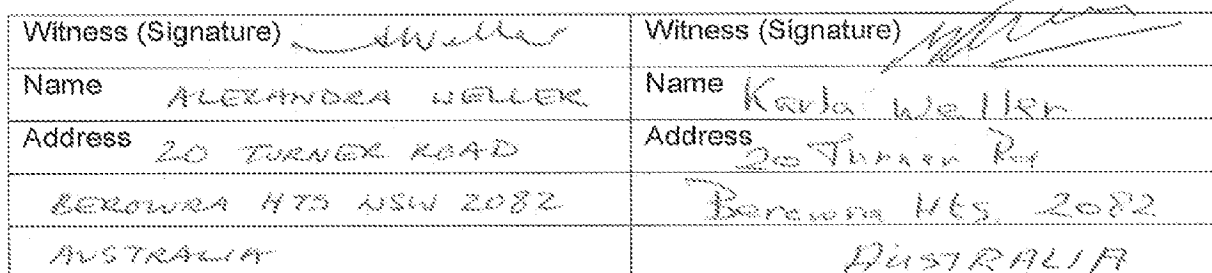 Witness (Signature) AWeller
Witness (Signature)
Name ALEXANDRA WELLER
Name Karla Weller
Address 20 TURNER ROAD
Address 20 Turner Rd
BEROWRA HTS NSW 2082
Berowra Hts 2082
AUSTRALIA
AUSTRALIA